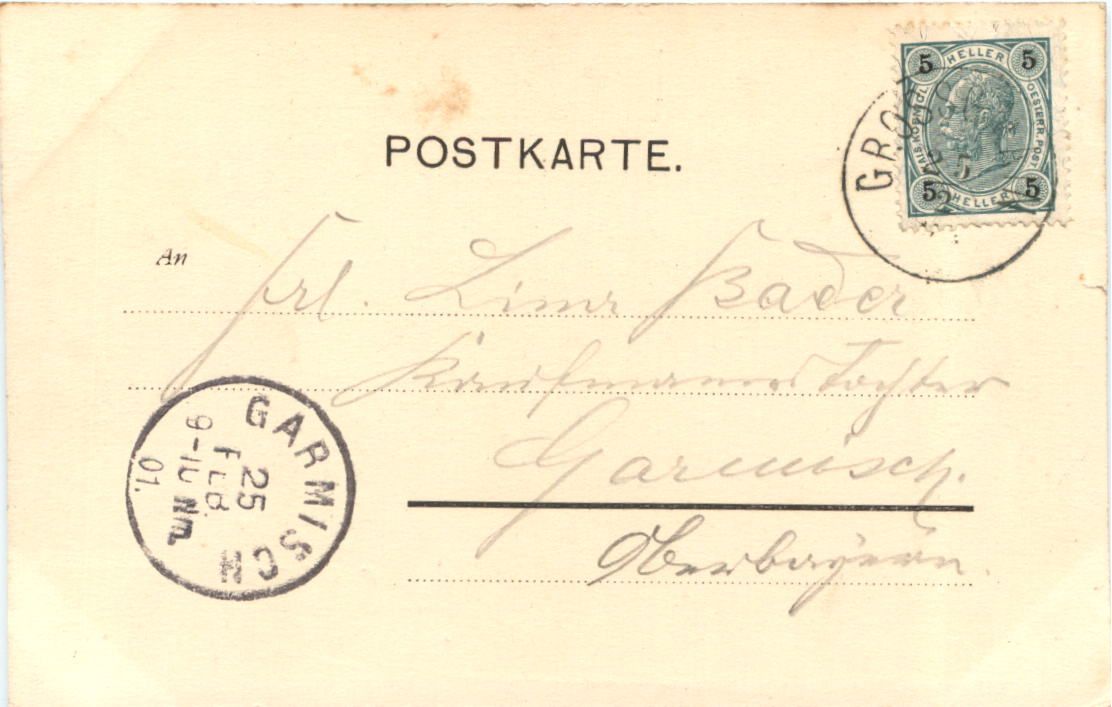 POSTKARTE.
5 HELLER 5
KAIS. KÖNIGL. OESTERR. POST
5 HELLER 5
GROSS
25
An
Frl. Bader
Kaufmanns Tochter
Garmisch.
Oberbayern.
GARMISCH
25
FEB.
9-10 Nm.
01.